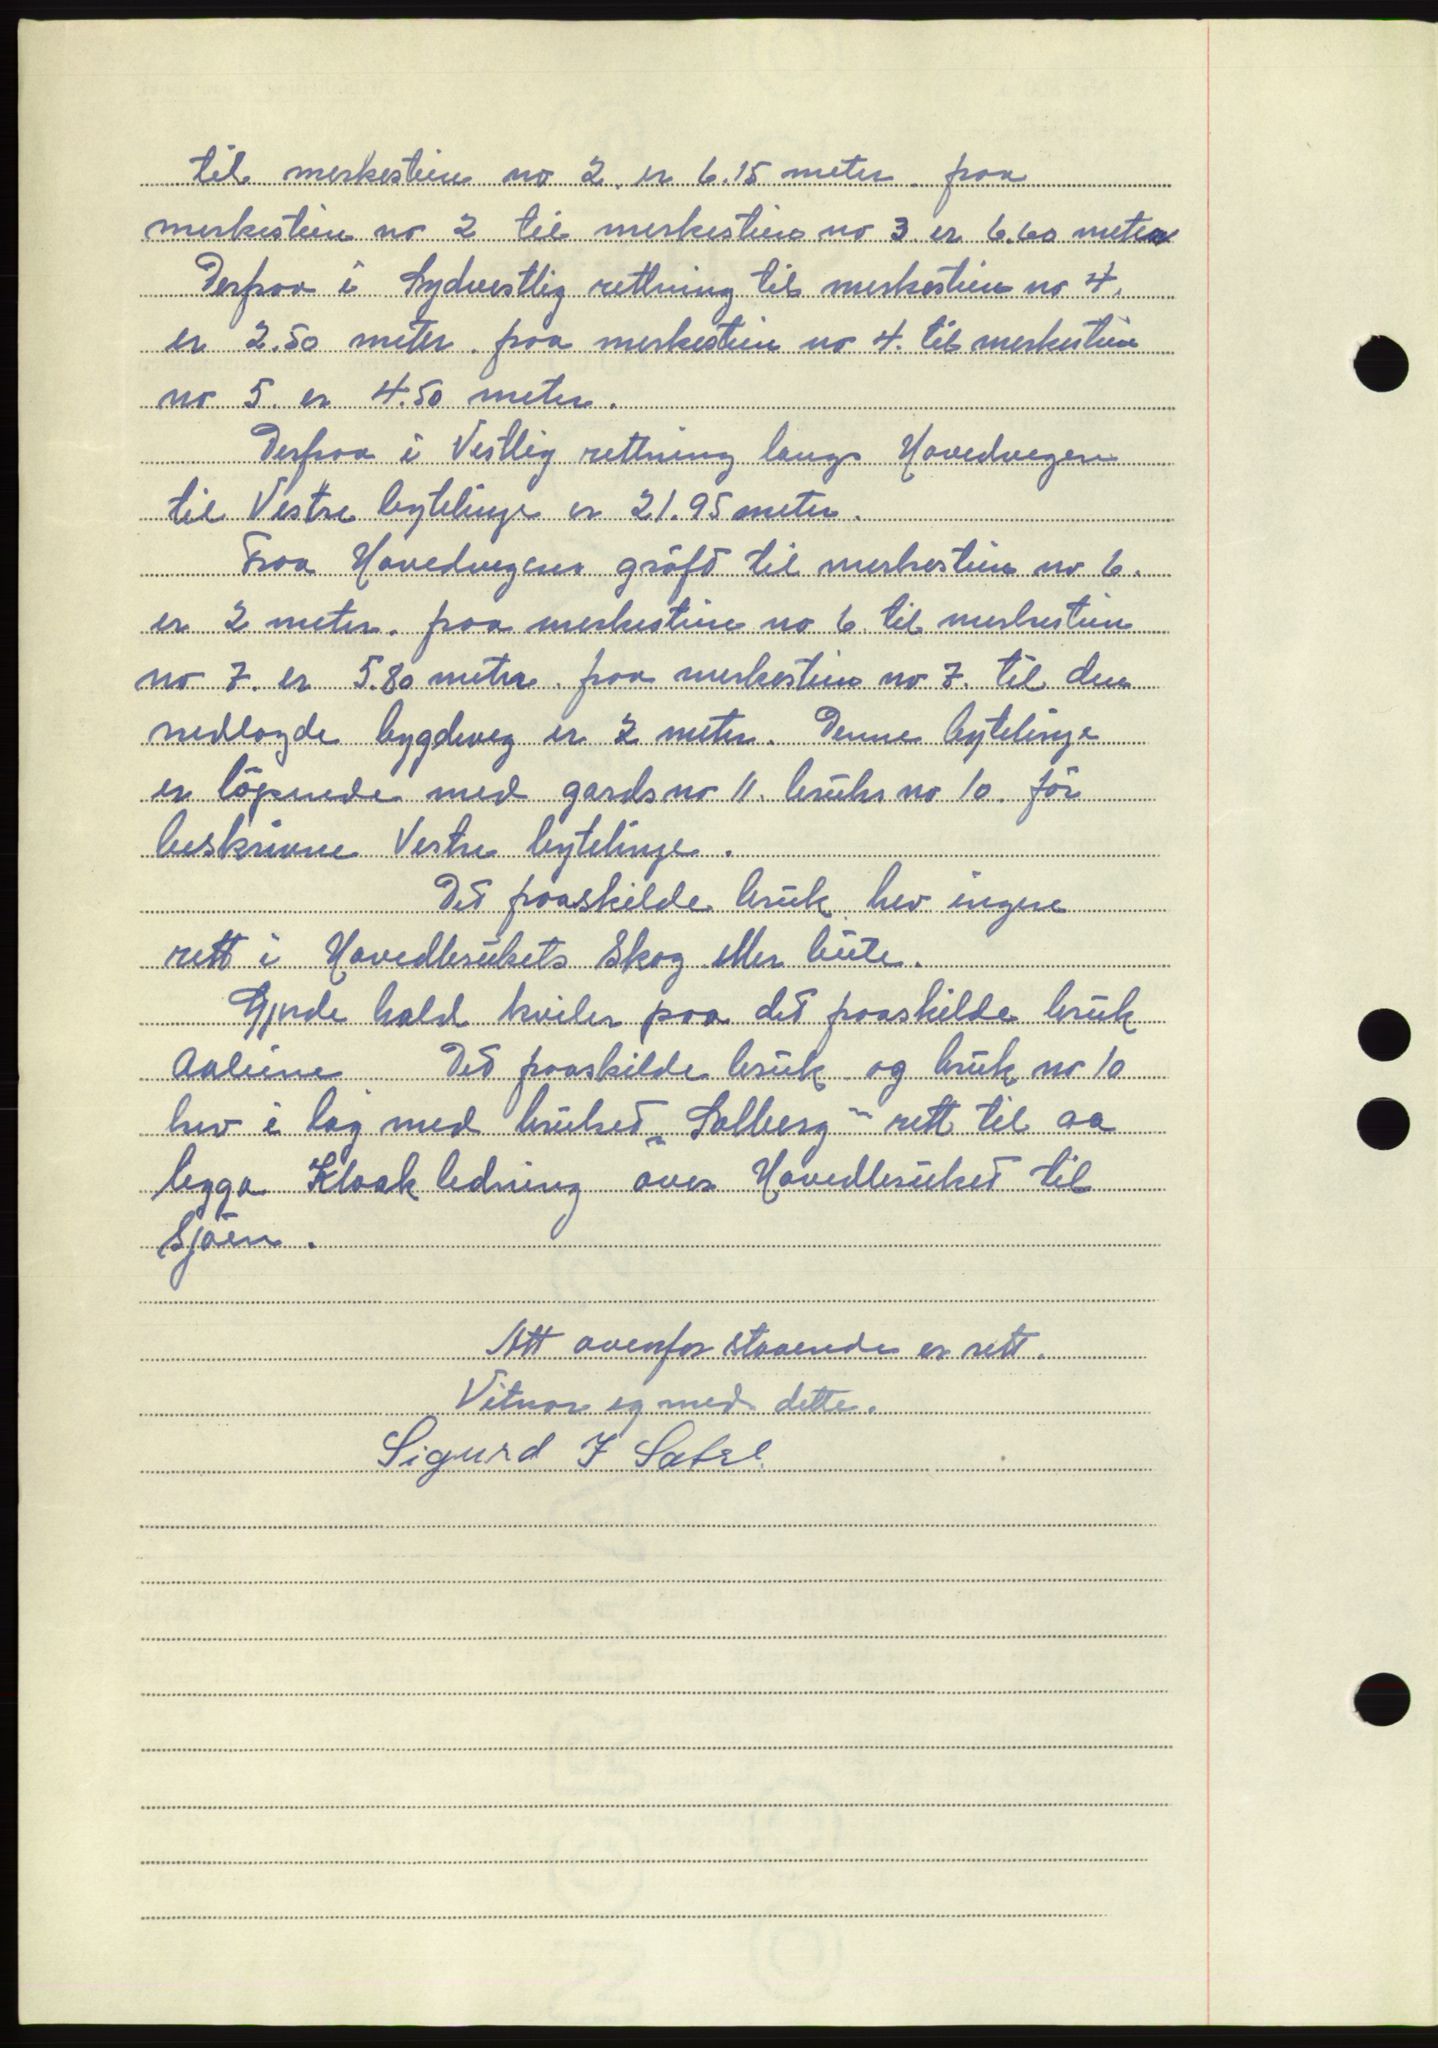 til merkestein no 2. er 6.15 meter. fraa
merkestein no 2 til merkestein no 3. er 6.60 meter
Derfraa i Sydvestlig rettning til merkestein no 4.
er 2.50 meter. fraa merkestein no 4. til merkestein
no 5. er 4.50 meter.
Derfraa i Vestlig rettning langs Hovedvegen
til Vestre bytelinje er 21.95 meter.
Fraa Hovedvegens gröft til merkestein no 6.
er 2 meter. fraa merkestein no 6. til merkestein
no 7. er 5.80 meter. fraa merkestein no 7. til den
nedlagde bygdeveg er 2 meter. Denne bytelinje
er löpende med gards no 11. bruks no 10. för
beskrivne Vestre bytelinje.
Det fraaskilde bruk hev ingen
rett i Hovedbrukets Skog eller beite.
Gjerde hald kviler paa det fraaskilde bruk
aaleine Det fraaskilde bruk og bruk no 10
hev i lag med bruket "Solberg" rett til aa
legga Kloak ledning over Hovedbruket til
Sjöen.
Att ovenfor staaende er rett.
Vitnar eg med dette.
Sigurd J